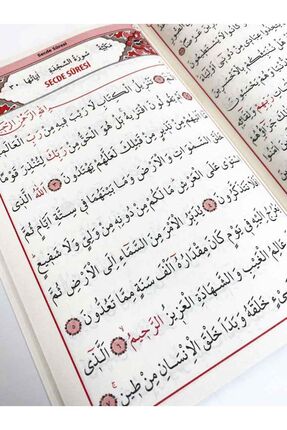 Secde Sûresi
سُورَةُ السَّجْدَةِ
SECDE SÛRESİ
بِسْمِ اللّٰهِ الرَّحْمٰنِ الرَّحِيمِ
تَنْزِيلُ الْكِتَابِ لَا رَيْبَ فِيهِ مِنْ رَبِّ الْعَالَمِينَ
يَقُولُونَ افْتَرٰيهُ بَلْ هُوَ الْحَقُّ مِنْ رَبِّكَ لِتُنْذِرَ قَوْمًا
مِنْ نَذِيرٍ مِنْ قَبْلِكَ لَعَلَّهُمْ يَهْتَدُونَ ٣ اَللّٰهُ الَّذِى
السَّمٰوَاتِ وَالْاَرْضَ وَمَا بَيْنَهُمَا فِى سِتَّةِ اَيَّامٍ ثُمَّ
عَلَى الْعَرْشِ مَا لَكُمْ مِنْ دُونِهِ مِنْ وَلِىٍّ وَلَا شَفِيعٍ
تَتَذَكَّرُونَ ٤ يُدَبِّرُ الْاَمْرَ مِنَ السَّمَاءِ اِلَى الْاَرْضِ ثُمَّ
اِلَيْهِ فِى يَوْمٍ كَانَ مِقْدَارُهُ اَلْفَ سَنَةٍ مِمَّا تَعُدُّونَ ٥
عَالِمُ الْغَيْبِ وَالشَّهَادَةِ الْعَزِيزُ الرَّحِيمُ ٦ اَلَّذِى
شَىْءٍ خَلَقَهُ وَبَدَاَ خَلْقَ الْاِنْسَانِ مِنْ طِينٍ ٧